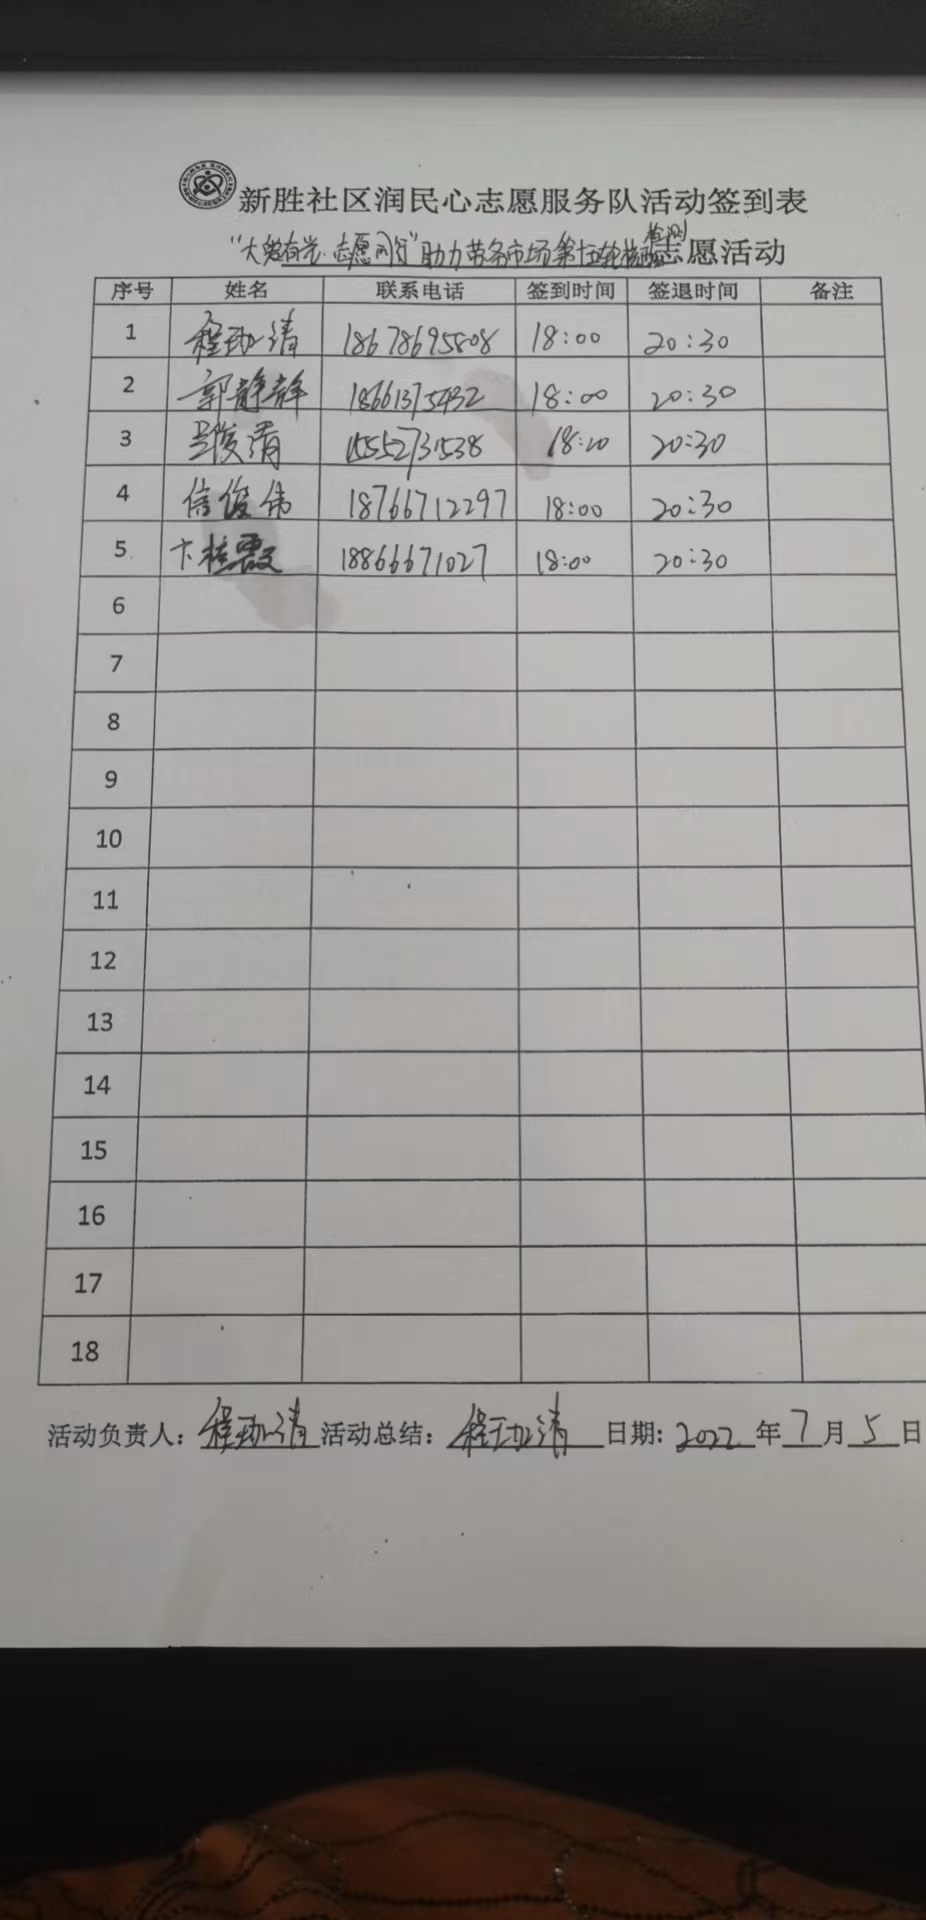 新胜社区润民心志愿服务队活动签到表
"大爱有光·志愿同行"助力劳务市场第十五轮核酸检测志愿活动
序号 姓名 联系电话 签到时间 签退时间 备注
1 程 清 18678695808 18:00 20:30
2 郭静静 18661375432 18:00 20:30
3 俊清 15552731538 18:20 20:30
4 信俊伟 18766712297 18:00 20:30
5 卞桂霞 18866671027 18:00 20:30
6
7
8
9
10
11
12
13
14
15
16
17
18
活动负责人: 程 清 活动总结: 程 清 日期: 2022 年 7 月 5 日